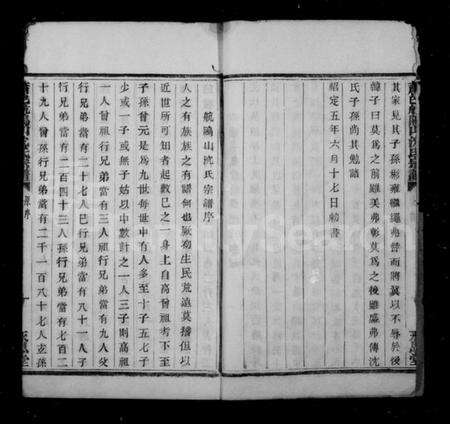 其家見其子孫彬雍繩繩弗替而將莫以不辱於後
韓子曰莫爲之前雖美弗彰莫爲之後雖盛弗傳沈
氏子孫尚其勉諸
紹定五年六月十七日勅書
航鷗山沈氏宗譜序
人之有族族之有譜何也厥初生民荒遠莫稽但以
近世所可知者起數巳之一身上自高曾祖考下至
子孫曾元是爲九世每世中有人多至十子五七子
少或一子或無子姑以中數計之一人三子則高祖
一人曾祖行兄弟當有三人祖行兄弟當有九人父
行兄弟當有二十七人巳行兄弟當有八十一人子
行兄弟當有二百四十三人孫行兄弟當有七百二
十九人曾孫行兄弟當有二千一百八十七人玄孫